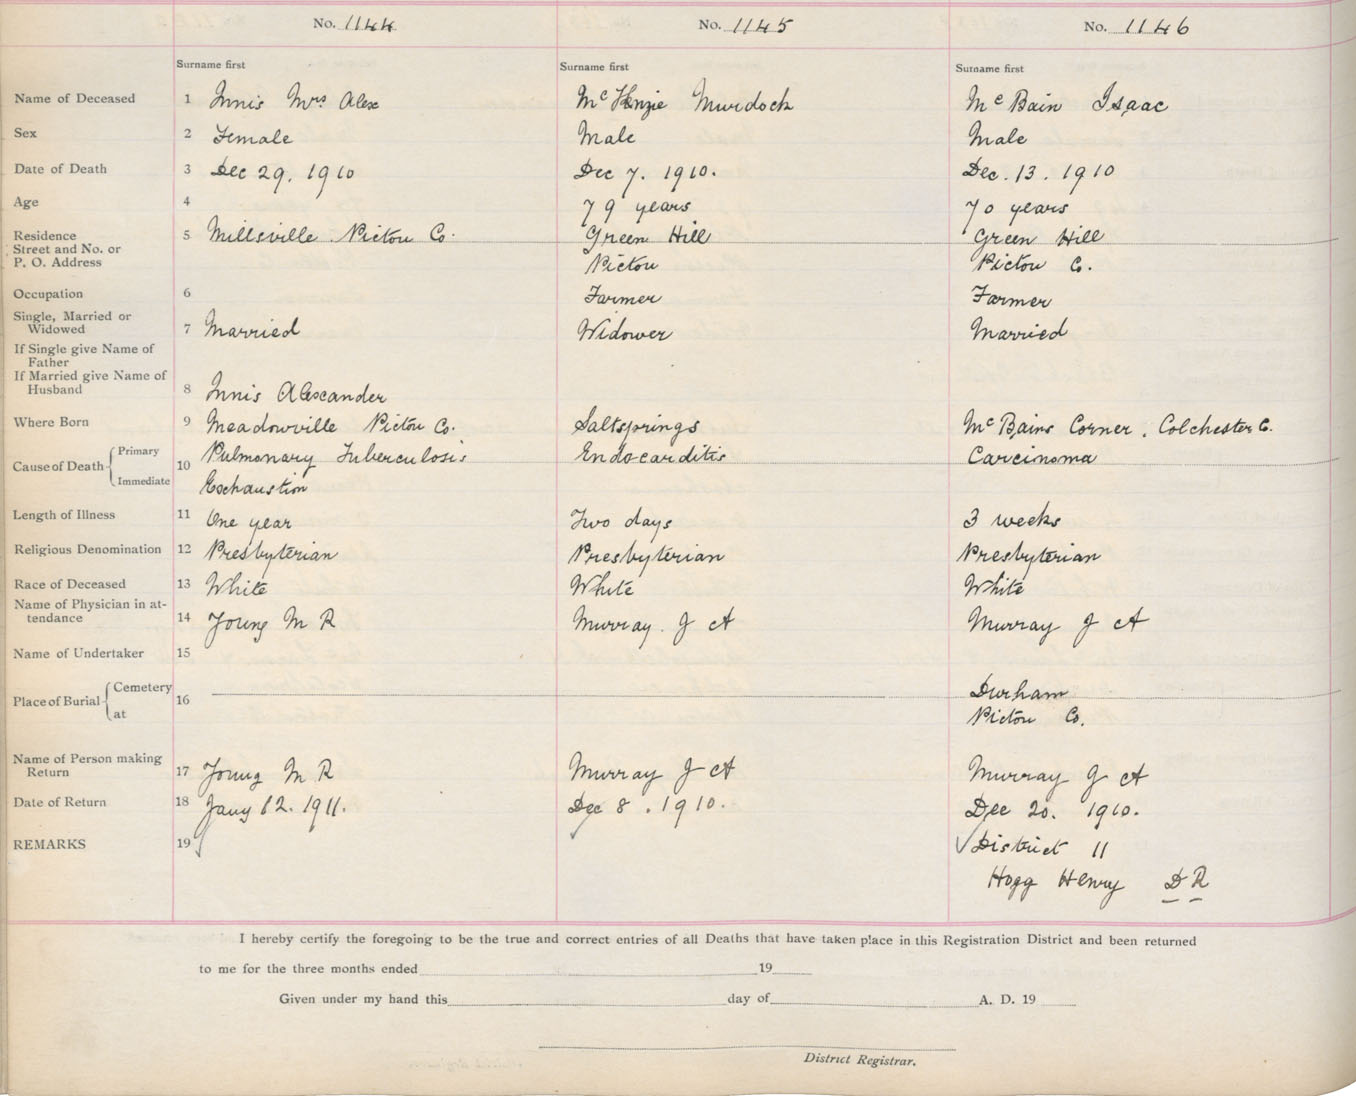 No. 1144 No. 1145 No. 1146
Surname first Surname first Surname first
Name of Deceased 1 Innis Mrs Alex McKenzie Murdock McBain Isaac
Sex 2 Female Male Male
Date of Death 3 Dec 29. 1910 Dec 7. 1910. Dec. 13. 1910
Age 4 79 years 70 years
Residence 5 Millsville Pictou Co. Green Hill Green Hill
Street and No. or
P. O. Address Pictou Pictou Co.
Occupation 6 Farmer Farmer
Single, Married or
Widowed 7 Married Widower Married
If Single give Name of
Father
If Married give Name of
Husband 8 Innis Alexander
Where Born 9 Meadowville Pictou Co. Saltsprings McBains Corner, Colchester Co.
Cause of Death Primary 10 Pulmonary Tuberculosis Endocarditis Carcinoma
Immediate Exhaustion
Length of Illness 11 One year Two days 3 weeks
Religious Denomination 12 Presbyterian Presbyterian Presbyterian
Race of Deceased 13 White White White
Name of Physician in at-
tendance 14 Young M R Murray. J A Murray J A
Name of Undertaker 15
Place of Burial Cemetery 16 Durham
at Pictou Co.
Name of Person making
Return 17 Young M R Murray J A Murray J A
Date of Return 18 Jany 12. 1911. Dec 8. 1910. Dec 20. 1910.
REMARKS 19 District 11
Hogg Henry D R
I hereby certify the foregoing to be the true and correct entries of all Deaths that have taken place in this Registration District and been returned
to me for the three months ended 19
Given under my hand this day of A. D. 19
District Registrar.